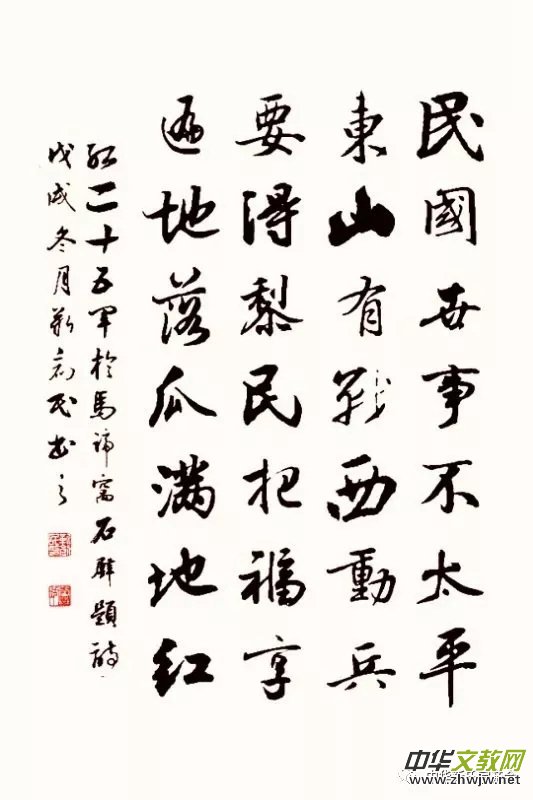 民國世事不太平
東山有戰西動兵
要得黎民把福享
遍地落瓜滿地红
红二十五军於馬蹄窩石壁題詩
戊戌冬月
民书之
中华文教网
www.zhwjw.net